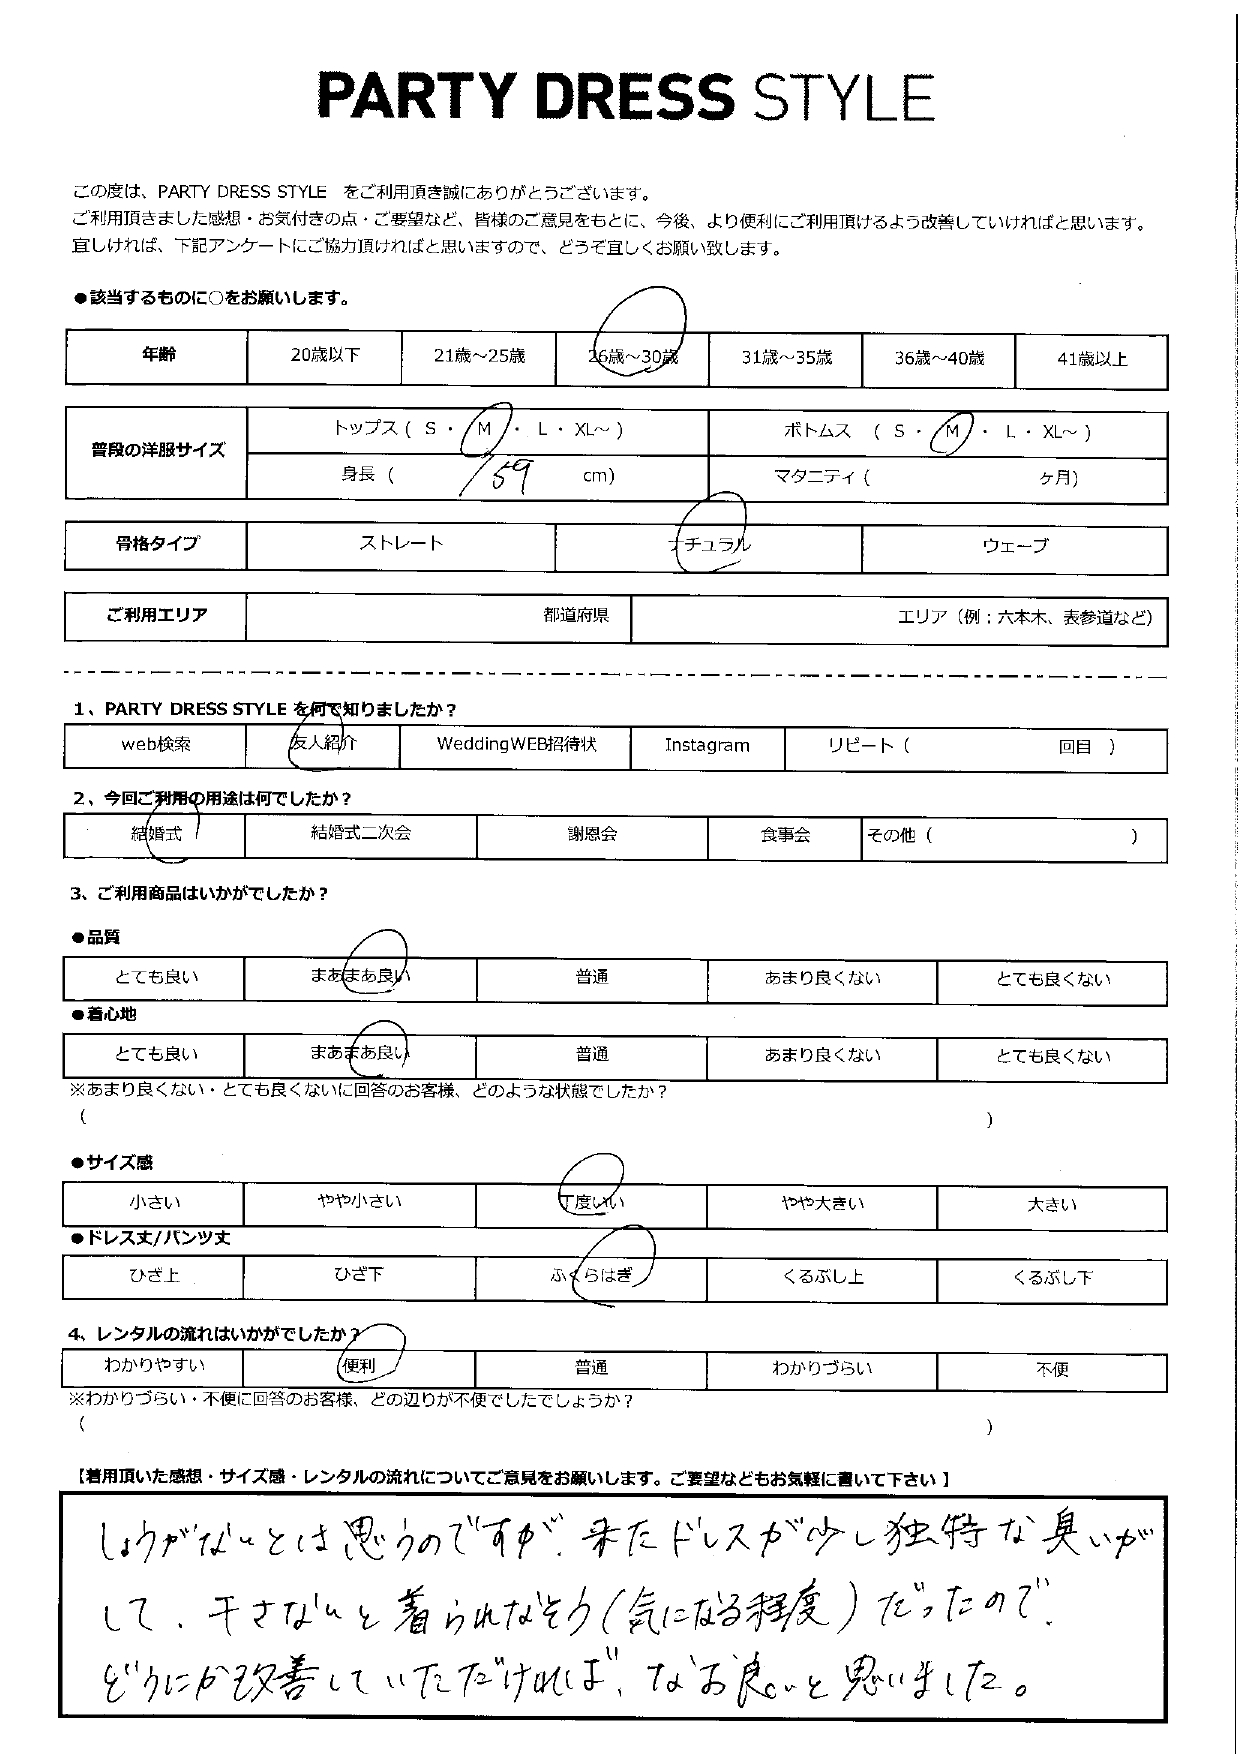 PARTY DRESS STYLE
この度は、PARTY DRESS STYLE をご利用頂き誠にありがとうございます。
ご利用頂きました感想・お気付きの点・ご要望など、皆様のご意見をもとに、今後、より便利にご利用頂けるよう改善していければと思います。
宜しければ、下記アンケートにご協力頂ければと思いますので、どうぞ宜しくお願い致します。
●該当するものに○をお願いします。
年齢 20歳以下 21歳～25歳 26歳～30歳 31歳～35歳 36歳～40歳 41歳以上
普段の洋服サイズ トップス ( S ・ M ・ L ・ XL～ ) ボトムス ( S ・ M ・ L ・ XL～ )
身長 ( 159 cm) マタニティ ( ヶ月)
骨格タイプ ストレート ナチュラル ウェーブ
ご利用エリア 都道府県 エリア（例；六本木、表参道など）
1、PARTY DRESS STYLE を何で知りましたか？
web検索 友人紹介 WeddingWEB招待状 Instagram リピート ( 回目 )
2、今回ご利用の用途は何でしたか？
結婚式 結婚式二次会 謝恩会 食事会 その他 ( )
3、ご利用商品はいかがでしたか？
●品質
とても良い まあまあ良い 普通 あまり良くない とても良くない
●着心地
とても良い まあまあ良い 普通 あまり良くない とても良くない
※あまり良くない・とても良くないに回答のお客様、どのような状態でしたか？
( )
●サイズ感
小さい やや小さい 丁度いい やや大きい 大きい
●ドレス丈/パンツ丈
ひざ上 ひざ下 ふくらはぎ くるぶし上 くるぶし下
4、レンタルの流れはいかがでしたか？
わかりやすい 便利 普通 わかりづらい 不便
※わかりづらい・不便に回答のお客様、どの辺りが不便でしたでしょうか？
( )
【着用頂いた感想・サイズ感・レンタルの流れについてご意見をお願いします。ご要望などもお気軽に書いて下さい】
しょうがないとは思うのですが、来たドレスが少し独特な臭いが
して、干さないと着られなそう(気になる程度)だったので、
どうにか改善していただければ、なお良いと思いました。